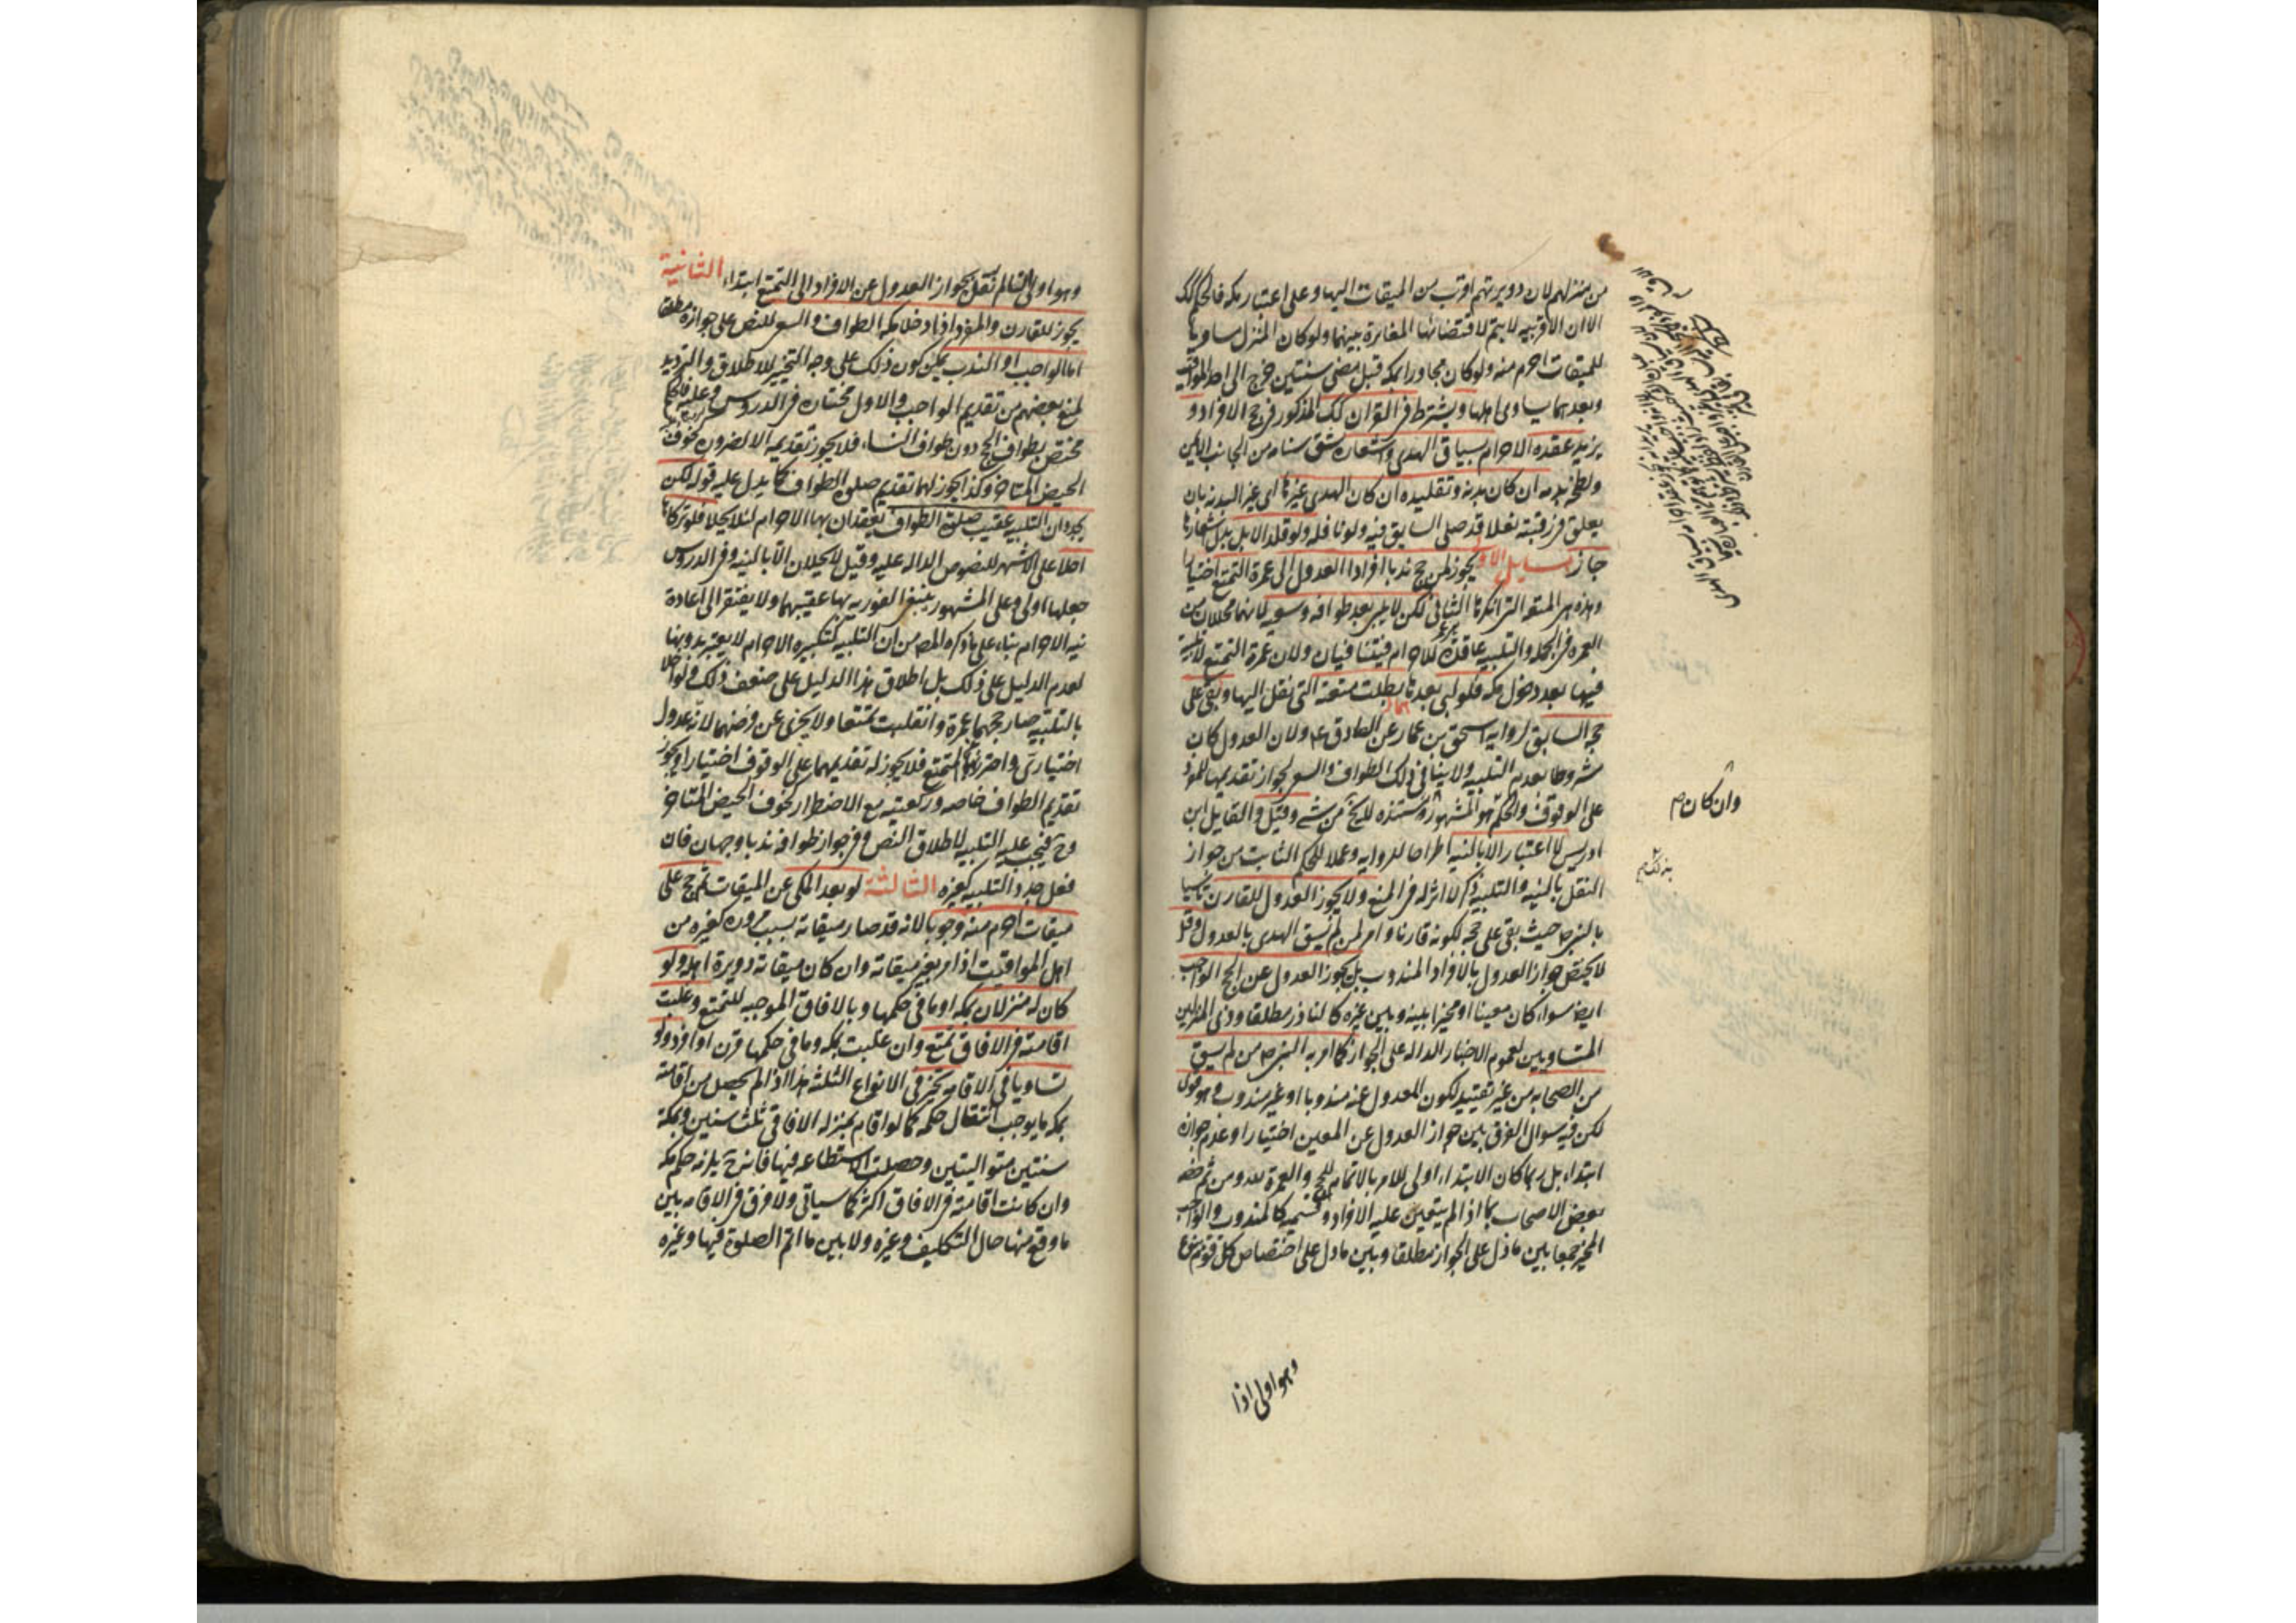 من منزلهم لان دويرتهم اقرب من الميقات اليها وعلى اعتبار مكه فالحكم كك
الا ان الاقربيه لا يتم لاقتضائها المغايرة بينهما ولو كان المنزل مساويا
للميقات احرم منه ولو كان مجاورا بمكه قبل مضى سنتين خرج الى احد المواقيت
وبعدهما يساوى اهلها ويشترط فى القران كك المذكور فى حج الافراد و
يزيد عقده الاحرام بسياق الهدى واشعاره بشق سنامه من الجانب الايمن
ولطخه بدمه ان كان بدنه وتقليده ان كان الهدى غيرها اى غير البدنه بان
يعلق فى رقبته نعلا قد صلى السايق فيه ولو نافله ولو قلد الابل بدل اشعارها
جاز مسايل الاولى يجوز لمن حج ندبا افرادا العدول الى عمرة التمتع اختيارا
وهذه هى المتعه التى انكرها الثانى لكن لا يلبى بعد طوافه وسعيه لانهما محللان من
العمره فى الجمله والتلبيه عاقدة للاحرام فيتنافيان ولان عمرة التمتع لا تلبية
فيها بعد دخول مكه فلو لبى بعدها بطلت متعته التى نقل اليها وبقى على
حجه السابق لروايه اسحق بن عمار عن الصادق ع ولان العدول كان
مشروطا بعدم التلبيه ولا ينافى ذلك الطواف والسعى لجواز تقديمهما للمفرد
على الوقوف والحكم هو المشهور ومستنده للشيخ من شئ وقيل والقايل ابن
ادريس لا اعتبار الا بالنيه اطراحا للروايه وعملا للحكم الثابت من جواز
النقل بالنيه والتلبيه ذكر لا اثر له فى المنع ولا يجوز العدول للقارن تاسيا
بالنبى ص حيث بقى على حجه لكونه قارنا وامر لمن لم يسق الهدى بالعدول وقيل
لا يختص جواز العدول بالافراد المندوب بل يجوز العدول عن الحج الواجب
ايضا سواء كان معينا او مخيرا بينه وبين غيره كالناذر مطلقا وذى المنزلين
المتساويين لعموم الاخبار الداله على الجواز كما امر به النبى ص من لم يسق
من الصحابه من غير تقييد لكون المعدول عنه مندوبا او غير مندوب وهو قوى
لكن فيه سؤال الفرق بين جواز العدول عن المعين اختيارا وعدم جوازه
ابتداء بل ربما كان الابتداء اولى للامر بالاتمام للحج والعمرة لله ومن ثم خصه
بعض الاصحاب بما اذا لم يتعين عليه الافراد وقسيمه كالمندوب والواجب
المخير جمعا بين ما دل على الجواز مطلقا وبين ما دل على اختصاص كل قوم بنوع
وان كان ص
وهو اولى اذا
وهو اولى ان لم نقل بجواز العدول عن الافراد الى التمتع ابتداء الثانية
يجوز للقارن والمفرد اذا دخلا مكه الطواف والسعى للنص على جوازه مطلقا
اما الواجب او الندب يمكن كون ذلك على وجه التخيير للاطلاق والترديد
لمنع بعضهم من تقديم الواجب والاول مختاره فى الدروس وعليه فالحكم
مختص بطواف الحج دون طواف النساء فلا يجوز تقديمه الا لضروره كخوف
الحيض المتاخر وكذا يجوز لهما تقديم صلوة الطواف كما يدل عليه قوله لكن
يجددان التلبيه عقيب صلوة الطواف يعقدان بها الاحرام لئلا يحلا فلو تركاها
احلا على الاشهر للنصوص الداله عليه وقيل لا يحلان الا بالنيه وفى الدروس
جعلها اولى وعلى المشهور ينبغى الفوريه بها عقيبهما ولا يفتقر الى اعادة
نيه الاحرام بناء على ما ذكره المص من ان التلبيه كتكبيره الاحرام لا يعتبر بدونها
لعدم الدليل على ذلك بل اطلاق هذا الدليل على ضعف ذلك ولو اخلا
بالتلبيه صار حجهما عمرة وانقلب تمتعا ولا يجزى عن فرضهما لانه عدول
اختيارى واحترز بهما عن المتمتع فلا يجوز له تقديمهما على الوقوف اختيارا ويجوز
تقديم الطواف خاصه وركعتيه مع الاضطرار كخوف الحيض المتاخر
وح فيجب عليه التلبيه لاطلاق النص وفى جواز طوافه ندبا وجهان فان
فعل جدد التلبيه كغيره الثالثة لو بعد المكى عن الميقات ثم حج على
ميقات احرم منه وجوبا لانه قد صار ميقاته بسبب مروره كغيره من
اهل المواقيت اذا مر بغير ميقاته وان كان ميقاته دويرة اهله ولو
كان له منزلان بمكه او ما فى حكمها وبالافاق الموجبه للتمتع وغلبت
اقامته فى الافاق تمتع وان غلبت بمكه وما فى حكمها قرن او افرد ولو
تساويا فى الاقامه تخير فى الانواع الثلثه هذا اذا لم يحصل من اقامته
بمكه ما يوجب انتقال حكمه كما لو اقام بمنزله الافاقى ثلث سنين وبمكة
سنتين متواليتين وحصلت الاستطاعه فيها فانه ح يلزمه حكم مكه
وان كانت اقامته فى الافاق اكثر كما سياتى ولا فرق فى الاقامه بين
ما وقع منها حال التكليف وغيره ولا بين ما اتم الصلوة فيها وغيره